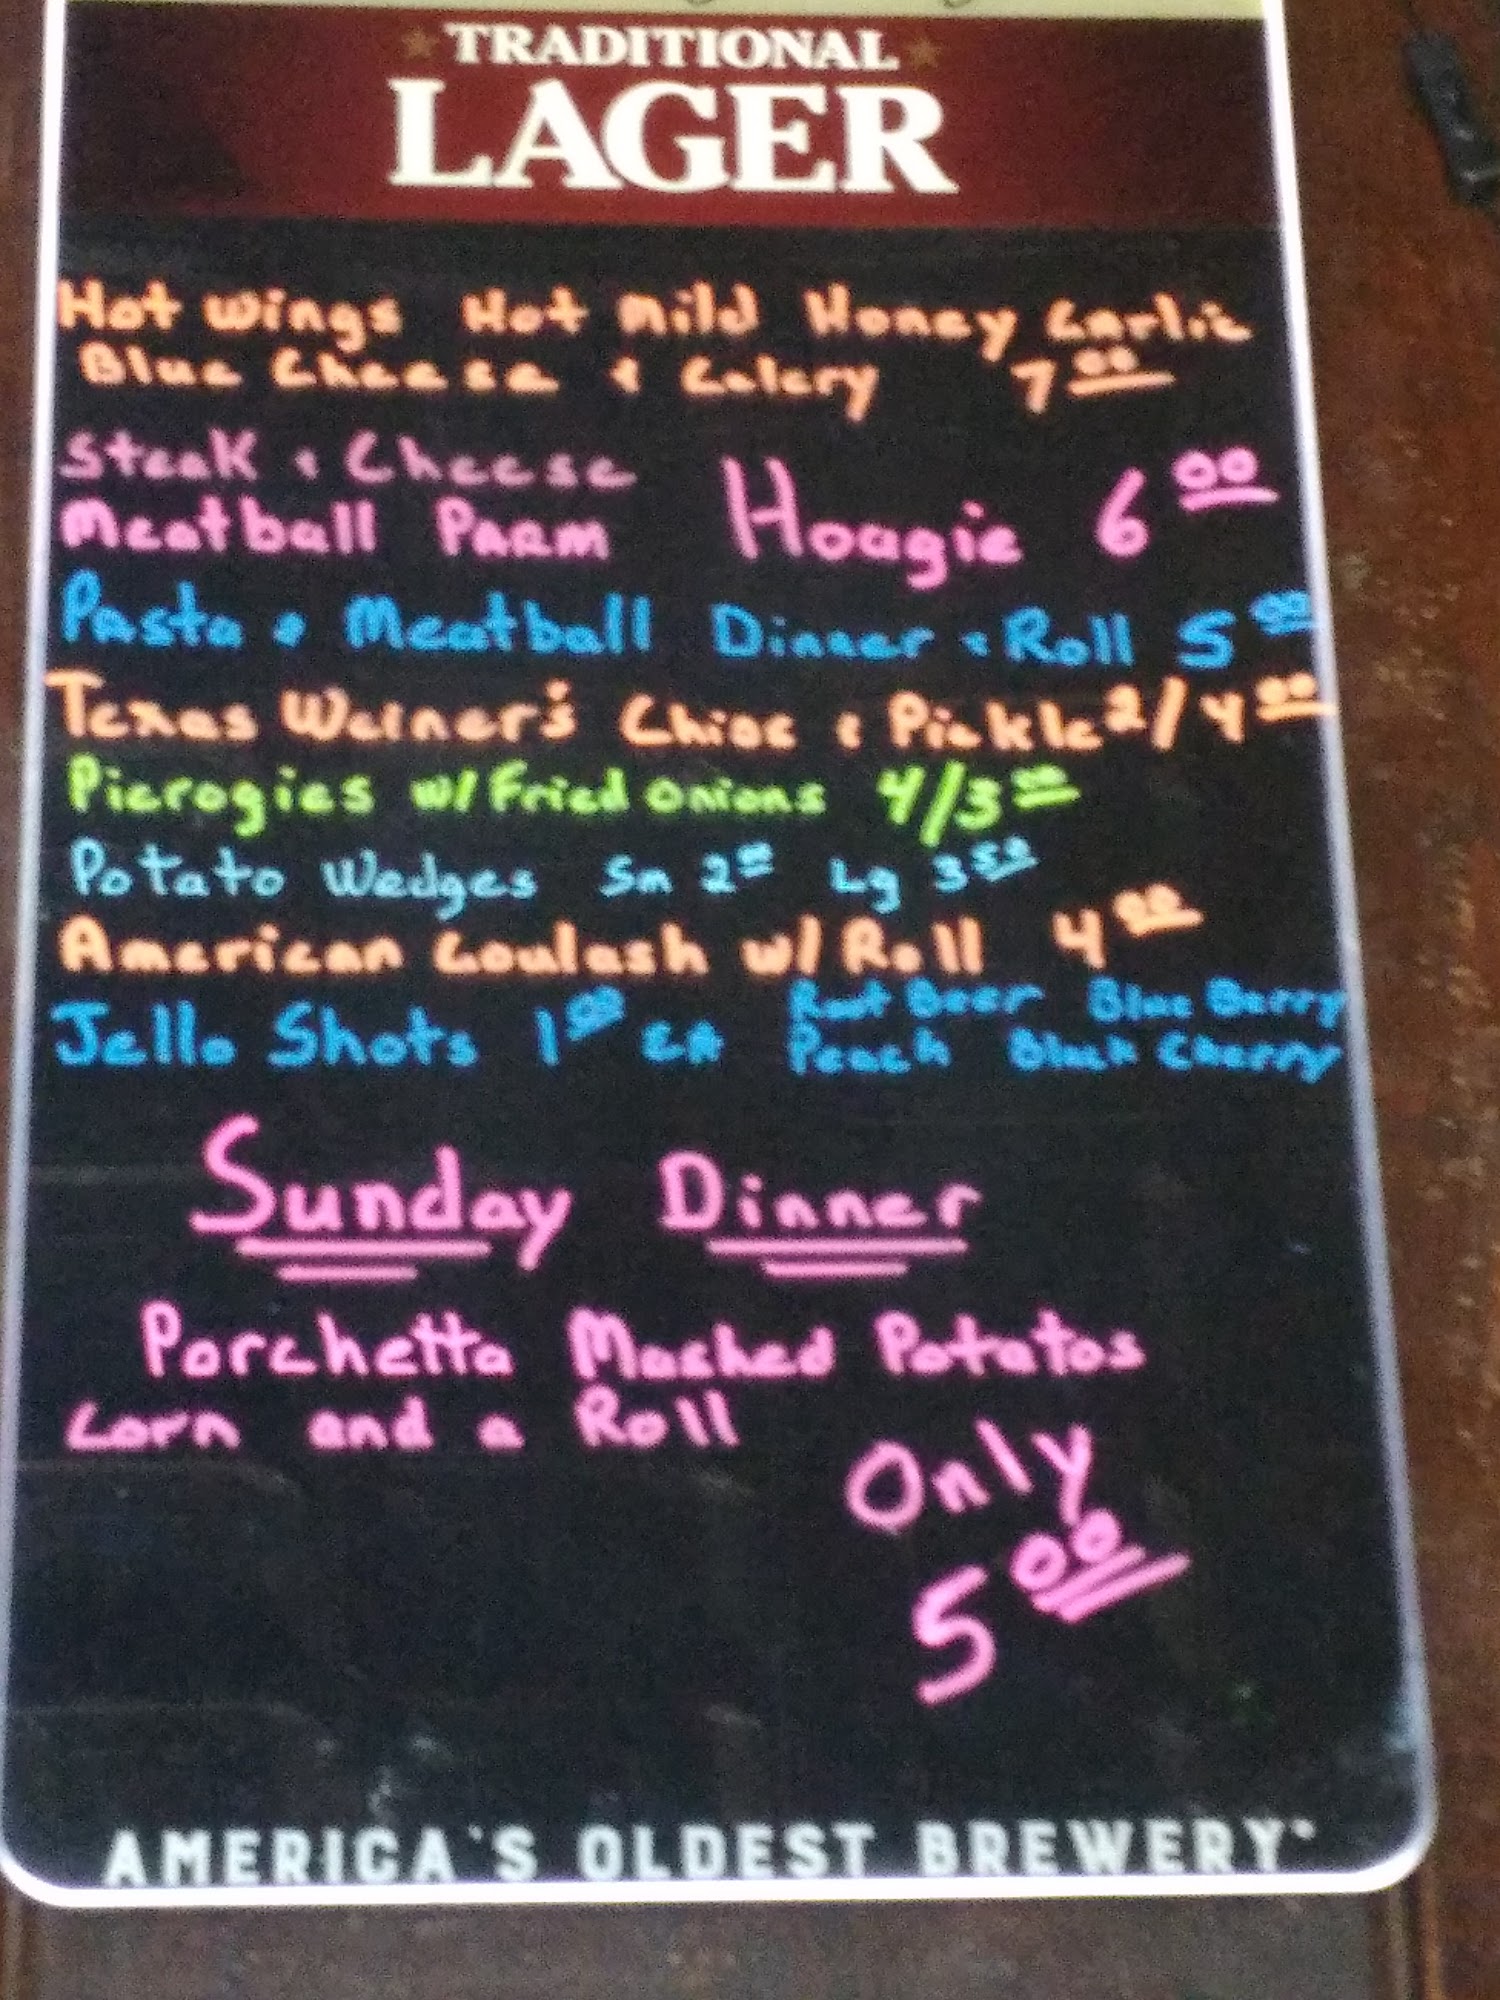 TRADITIONAL
LAGER
Hot Wings Hot Mild Honey Garlic
Blue Cheese + Celery 7.00
Steak + Cheese
Meatball Parm Hoagie 6.00
Pasta + Meatball Dinner + Roll 5.00
Texas Weiner's Chips + Pickle 2/4.00
Pierogies w/ Fried Onions 4/3.00
Potato Wedges Sm 2.00 Lg 3.50
American Goulash w/ Roll 4.00
Jello Shots 1.00 EA Root Beer Blue Berry
Peach Black Cherry
Sunday Dinner
Porchetta Mashed Potatos
Corn and a Roll
Only
5.00
AMERICA'S OLDEST BREWERY